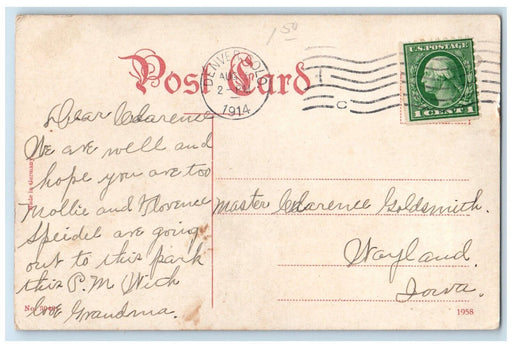 1 50
Post Card
DENVER COLO
AUG
2
1914
C
U.S. POSTAGE
1 CENT 1
Dear Clarence
We are well and
hope you are too
Mollie and Florence
Speidel are going
out to this park
this P.M With
love Grandma.
Master Clarence Goldsmith.
Wayland.
Iowa.
Made in Germany
No.
1958